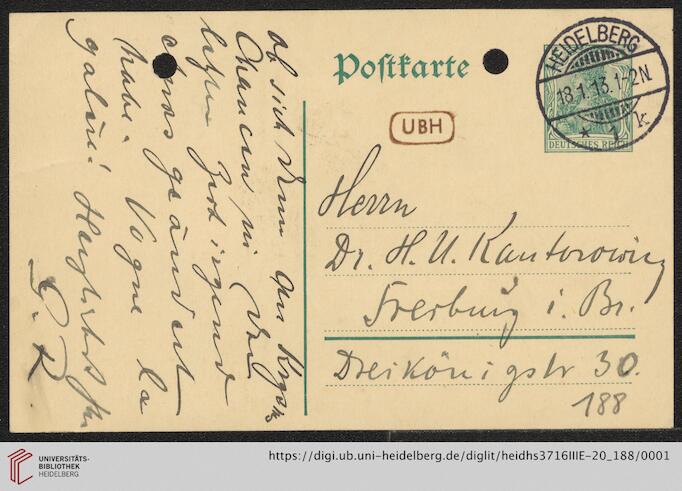 ob sich denn an
Chancen in der
letzten Zeit irgend
etwas geändert
habe. Vogue la
galère! Herzlichst Ihr
G. R.
Postkarte
HEIDELBERG
18.1.13.1-2N.
* 1 k
DEUTSCHES REICH
UBH
Herrn
Dr. H. U. Kantorowicz
Freiburg i. Br.
Dreikönigstr 30.
188
UNIVERSITÄTS-
BIBLIOTHEK
HEIDELBERG
https://digi.ub.uni-heidelberg.de/diglit/heidhs3716IIIE-20_188/0001